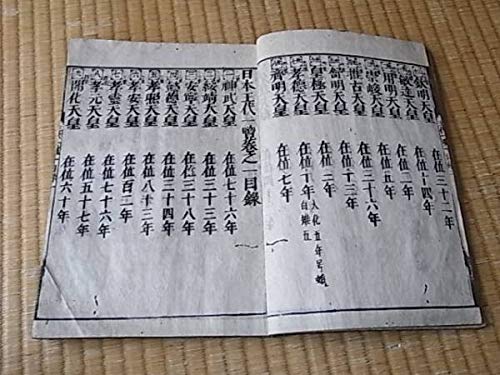 欽明天皇 在位三十二年
敏達天皇 在位十四年
用明天皇 在位二年
崇峻天皇 在位五年
推古天皇 在位三十六年
舒明天皇 在位十三年
皇極天皇 在位三年
孝德天皇 在位十年 大化五年 白雉五
齊明天皇 在位七年
日本王代一覽卷之一目録
神武天皇 在位七十六年
綏靖天皇 在位三十三年
安寧天皇 在位三十八年
懿德天皇 在位三十四年
孝昭天皇 在位八十三年
孝安天皇 在位百二年
孝靈天皇 在位七十六年
孝元天皇 在位五十七年
開化天皇 在位六十年